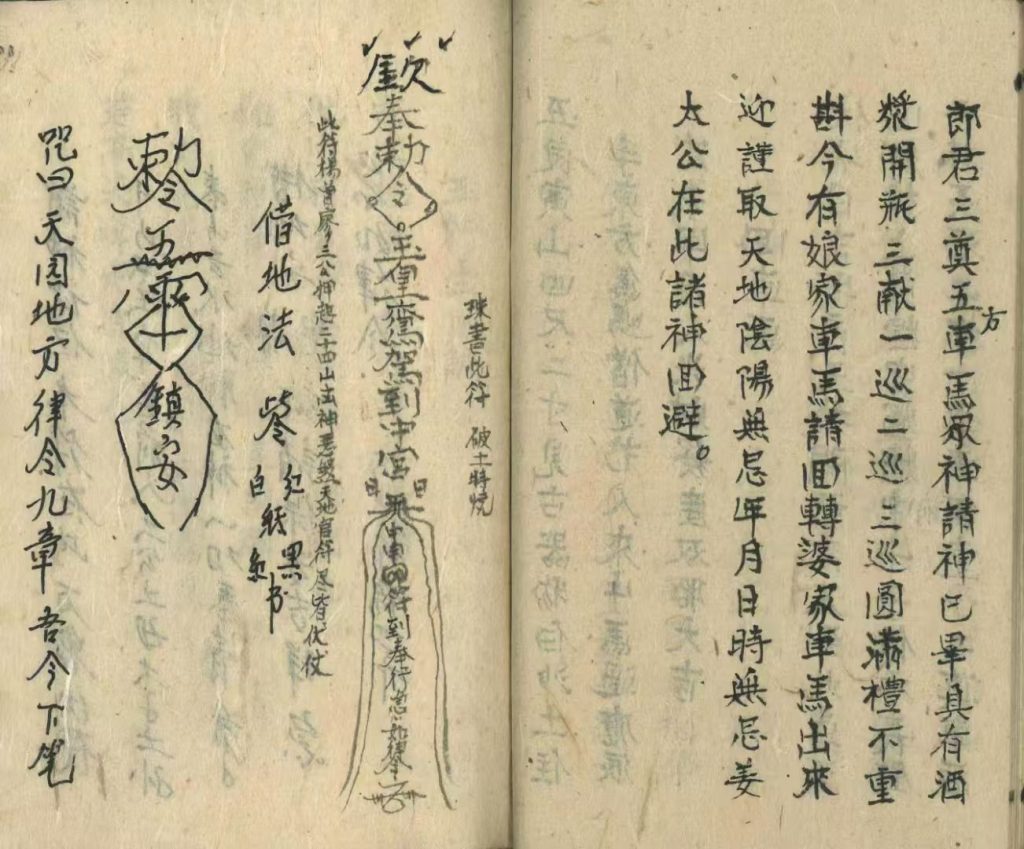 郎君三奠五方車馬眾神請神已畢具有酒
漿開瓶三献一巡二巡三巡圓滿禮不重
斟今有娘家車馬請回轉婆家車馬出來
迎謹取天地陰陽無忌年月日時無忌姜
太公在此諸神回避。
硃書此符 破土時焼
奉勅令 到中宮 符到奉行
此符楊曾廖三公押起二十四山凶神悪煞天地官符尽皆伏
借地法
紅黑
白紙 书
勅令
鎮安
咒曰天圓地方律令九章吾今下笔